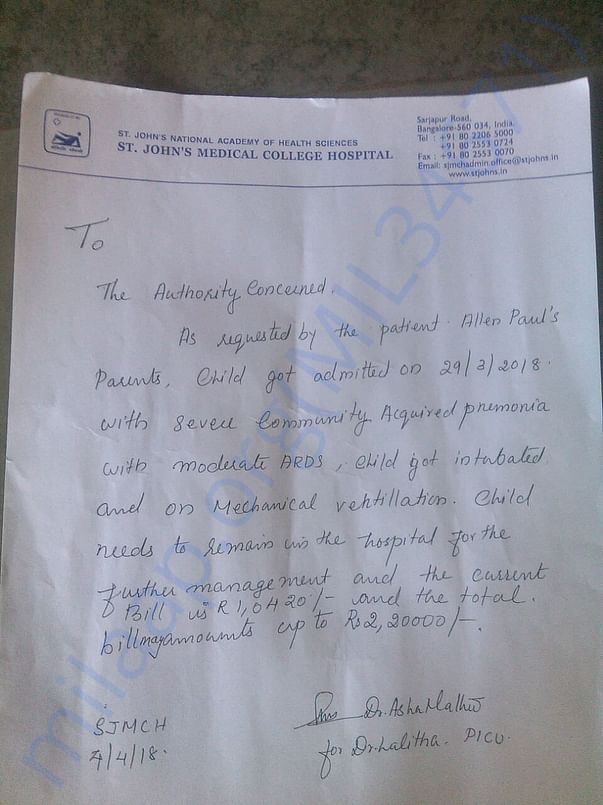 ST. JOHN'S NATIONAL ACADEMY OF HEALTH SCIENCES
ST. JOHN'S MEDICAL COLLEGE HOSPITAL
Sarjapur Road,
Bangalore-560 034, India.
Tel : +91 80 2206 5000
+91 80 2553 0724
Fax : +91 80 2553 0070
Email: sjmchadmin.office@stjohns.in
www.stjohns.in
To
The Authority Concerned.
As requested by the patient Allen Paul's
Parents, Child got admitted on 29/3/2018.
with Severe Community Acquired pnemonia
with moderate ARDS, Child got intubated
and on Mechanical vehtillation. Child
needs to remain in the hospital for the
further management and the current
Bill is R 1,0420/- and the total.
bill may amounts up to Rs 2,20000/-.
SJMCH
4/4/18.
Dr. Asha Mathew
for Dr. Lalitha. PICU.
milaap.org(MIL3471)